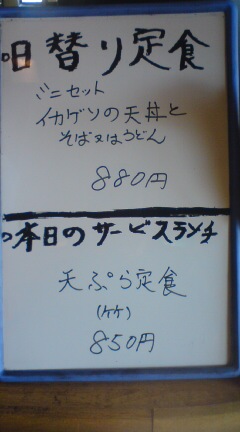 日替り定食
ミニセット
イカゲソの天丼と
そば又はうどん
880円
本日のサービスランチ
天ぷら定食
850円